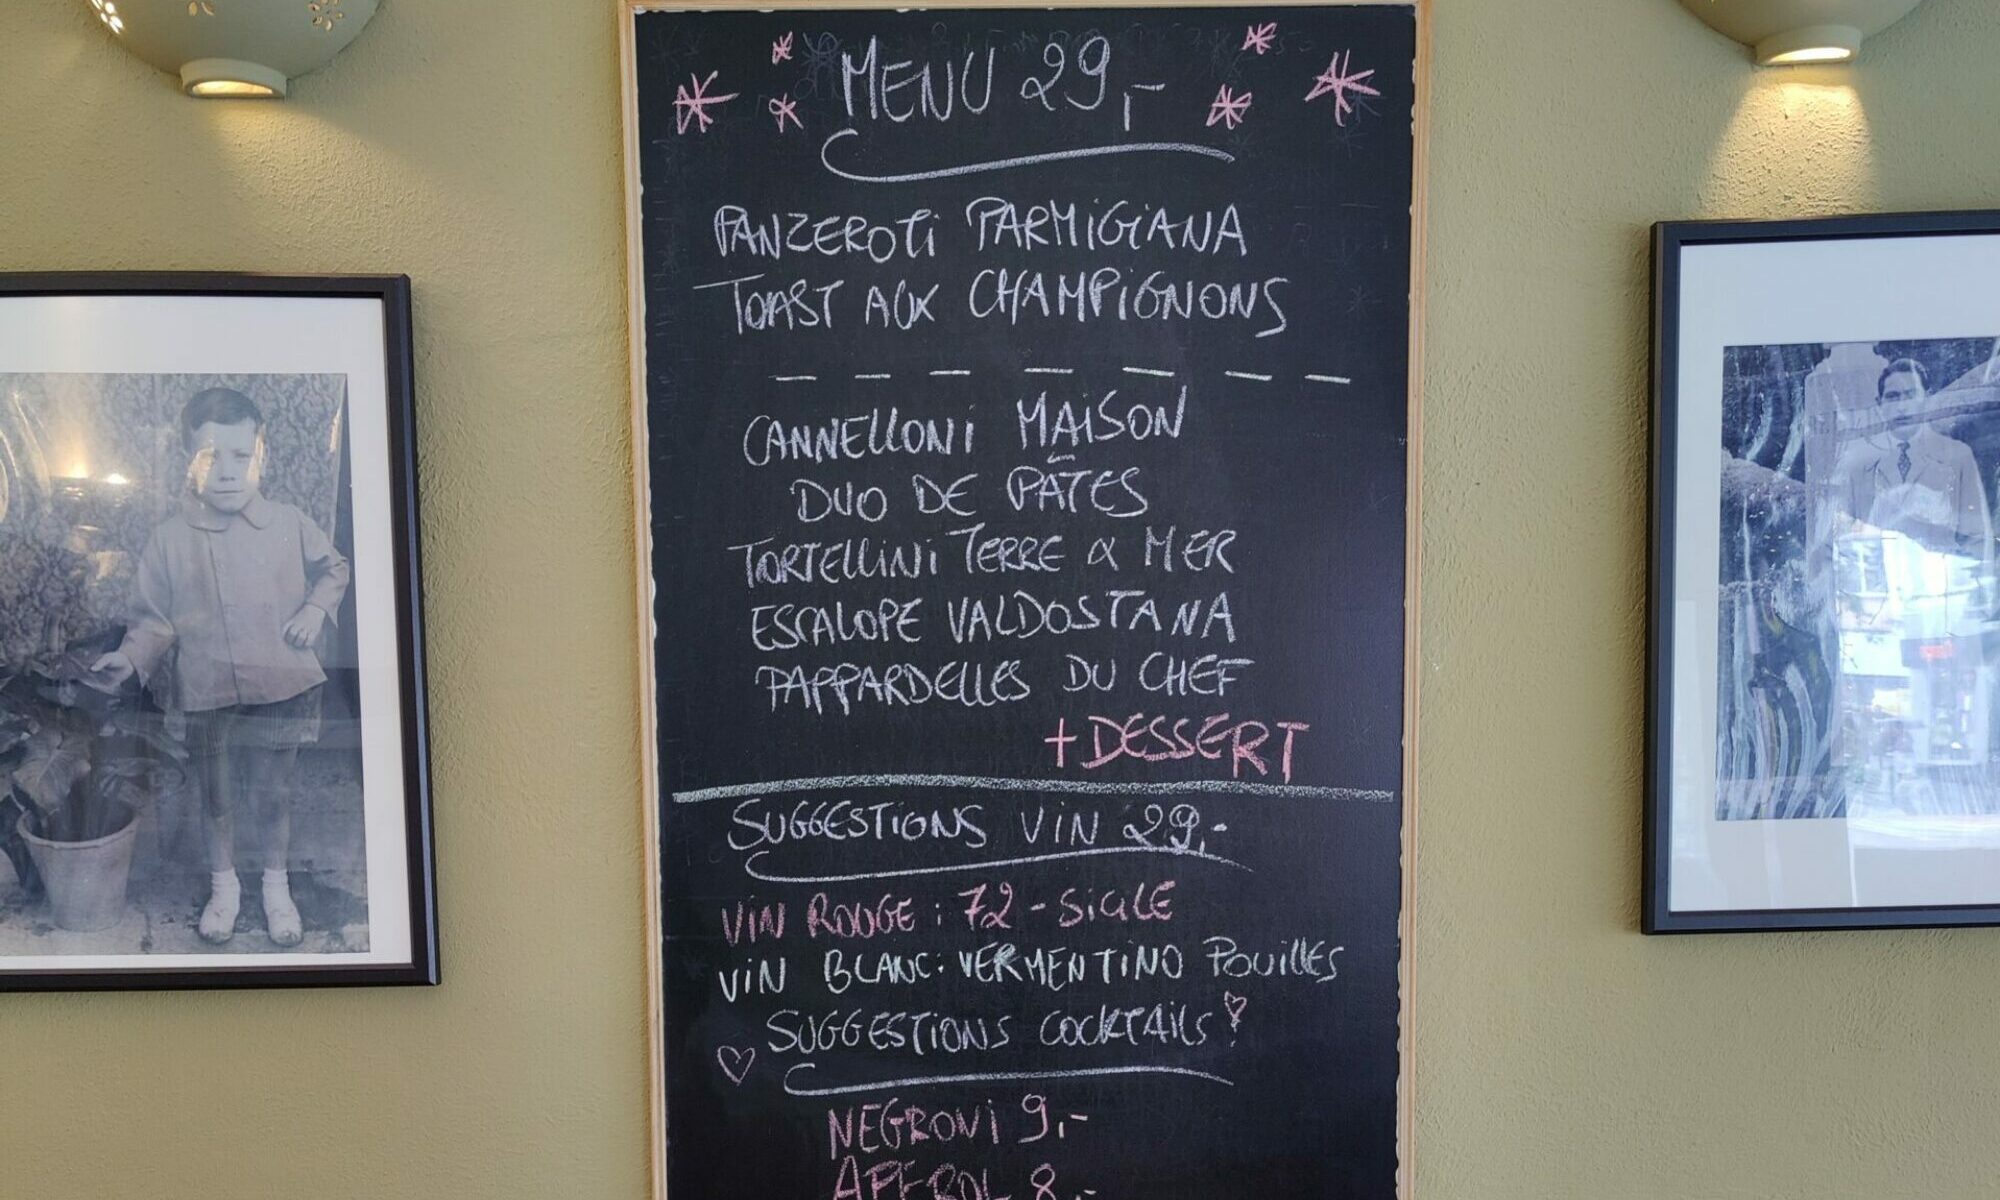 MENU 29,-
PANZEROTI PARMIGIANA
TOAST AUX CHAMPIGNONS
CANNELLONI MAISON
DUO DE PÂTES
TORTELLINI TERRE & MER
ESCALOPE VALDOSTANA
PAPPARDELLES DU CHEF
+DESSERT
SUGGESTIONS VIN 29,-
VIN ROUGE : 72 - SICILE
VIN BLANC: VERMENTINO POUILLES
SUGGESTIONS COCKTAILS
NEGRONI 9,-
APEROL 8,-